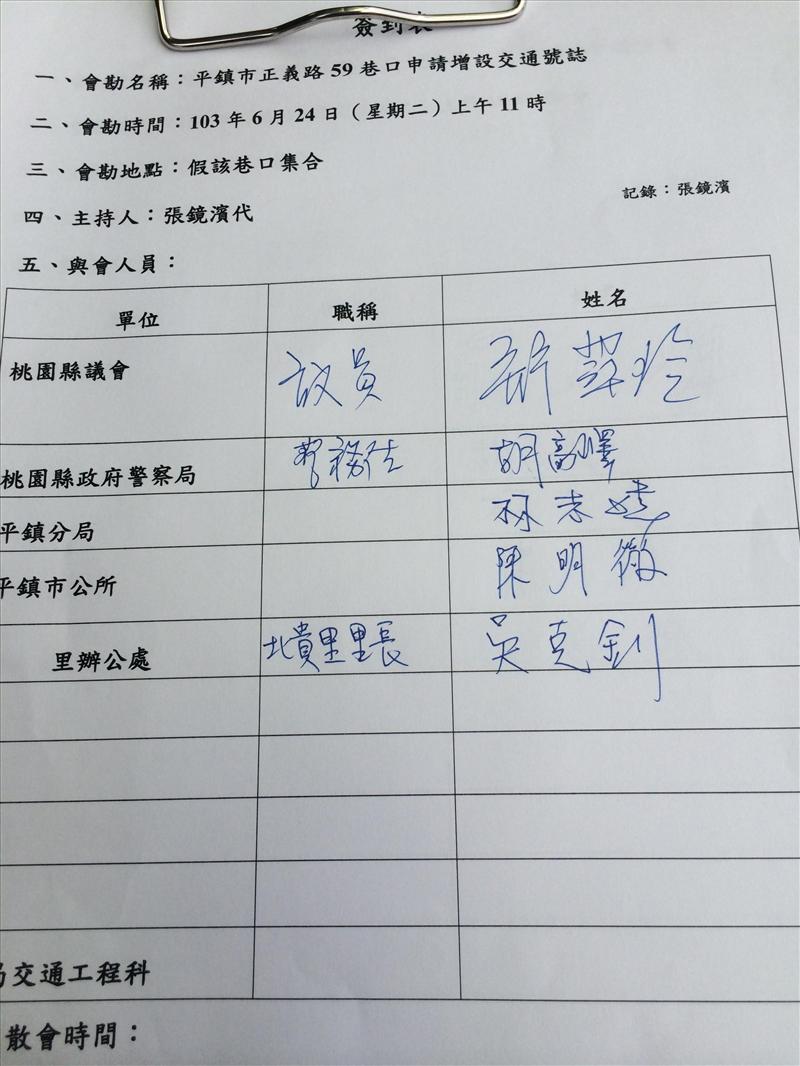 簽到表
一、會勘名稱：平鎮市正義路 59 巷口申請增設交通號誌
二、會勘時間：103 年 6 月 24 日（星期二）上午 11 時
三、會勘地點：假該巷口集合
記錄：張鏡濱
四、主持人：張鏡濱代
五、與會人員：
單位 職稱 姓名
桃園縣議會 議員
桃園縣政府警察局 警務佐 胡高
平鎮分局 林志
平鎮市公所 陳明徵
里辦公處 北貴里里長 吳克釗
局交通工程科
散會時間：